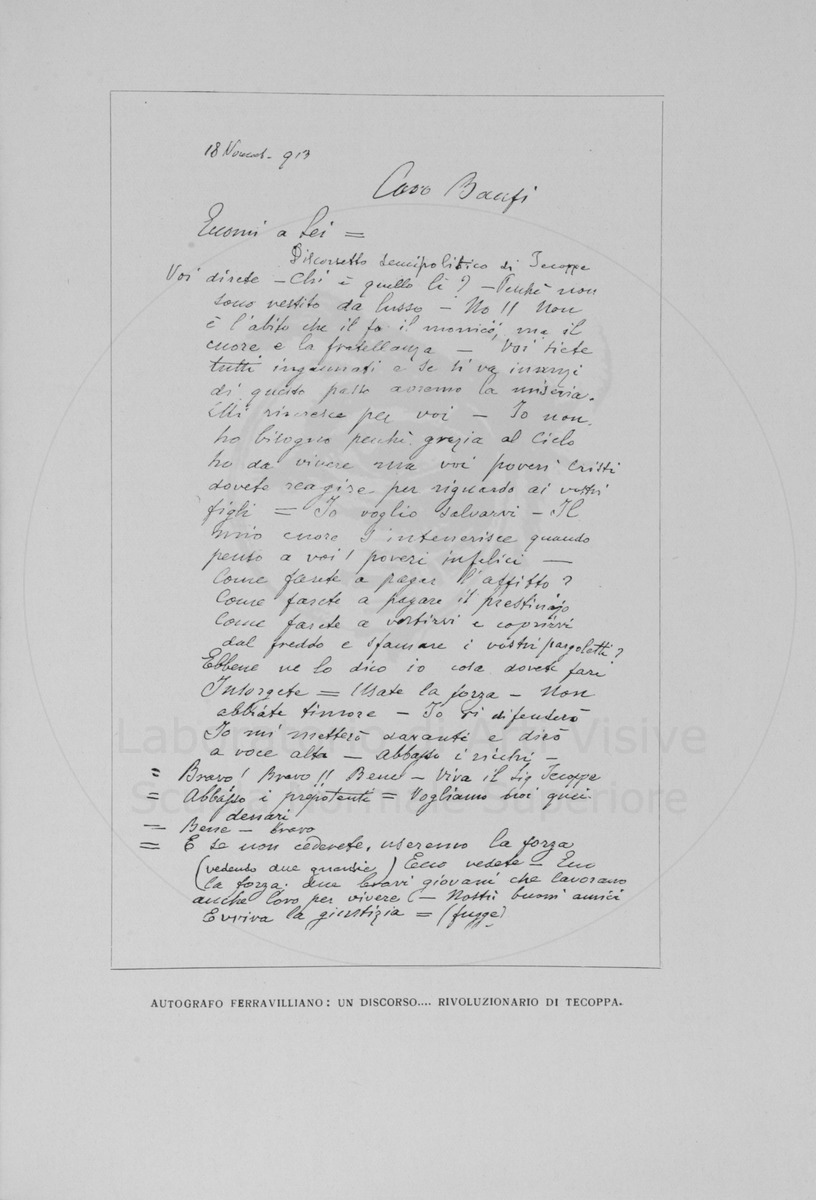 18 Novemb. 913
Caro Banfi
Eccomi a Lei =
Discorsetto semipolitico di Tecoppa
Voi direte - Chi è quello lì ? - Perchè non
sono vestito da lusso - No !! Non
è l'abito che il fa il monico, ma il
cuore e la fratellanza - Voi siete
tutti ingannati e se si va innanzi
di questo passo avremo la miseria.
Mi rincresce per voi - Io non
ho bisogno perchè grazia al Cielo
ho da vivere ma voi poveri Cristi
dovete reagire per riguardo ai vostri
figli = Io voglio salvarvi - Il
mio cuore s'intenerisce quando
penso a voi ! poveri infelici -
Come farete a pagar l'affitto ?
Come farete a pagare il prestinajo
Come farete a vestirvi e coprirvi
dal freddo e sfamare i vostri pargoletti ?
Ebbene ve lo dico io cosa dovete fare
Insorgete = Usate la forza - Non
abbiate timore - Io vi difenderò
Io mi metterò davanti e dirò
a voce alta - Abbasso i ricchi -
= Bravo ! Bravo !! Bene - Viva il Sig Tecoppa
= Abbasso i prepotenti = Vogliamo noi quei
denari
- Bene - Bravo
= E se non cederete, useremo la forza
(vedendo due guardie) Ecco vedete - Ecco
la forza. due bravi giovani che lavorano
anche loro per vivere - Nostri buoni amici
Evviva la giustizia = (fugge)
AUTOGRAFO FERRAVILLIANO: UN DISCORSO.... RIVOLUZIONARIO DI TECOPPA.
Laboratorio di Arti Visive
Scuola Normale Superiore